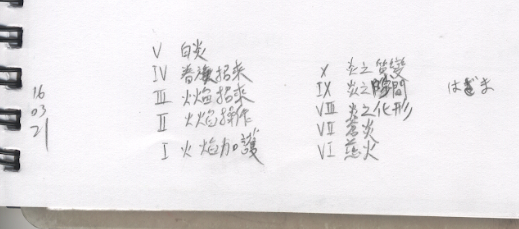 16
03
21
V 白炎
IV 眷族招来
III 火焔招来
II 火焔操作
I 火焔加護
X 炎之
IX 炎之隙間
VIII 炎之化形
VII 蒼炎
VI 慈火
はざま